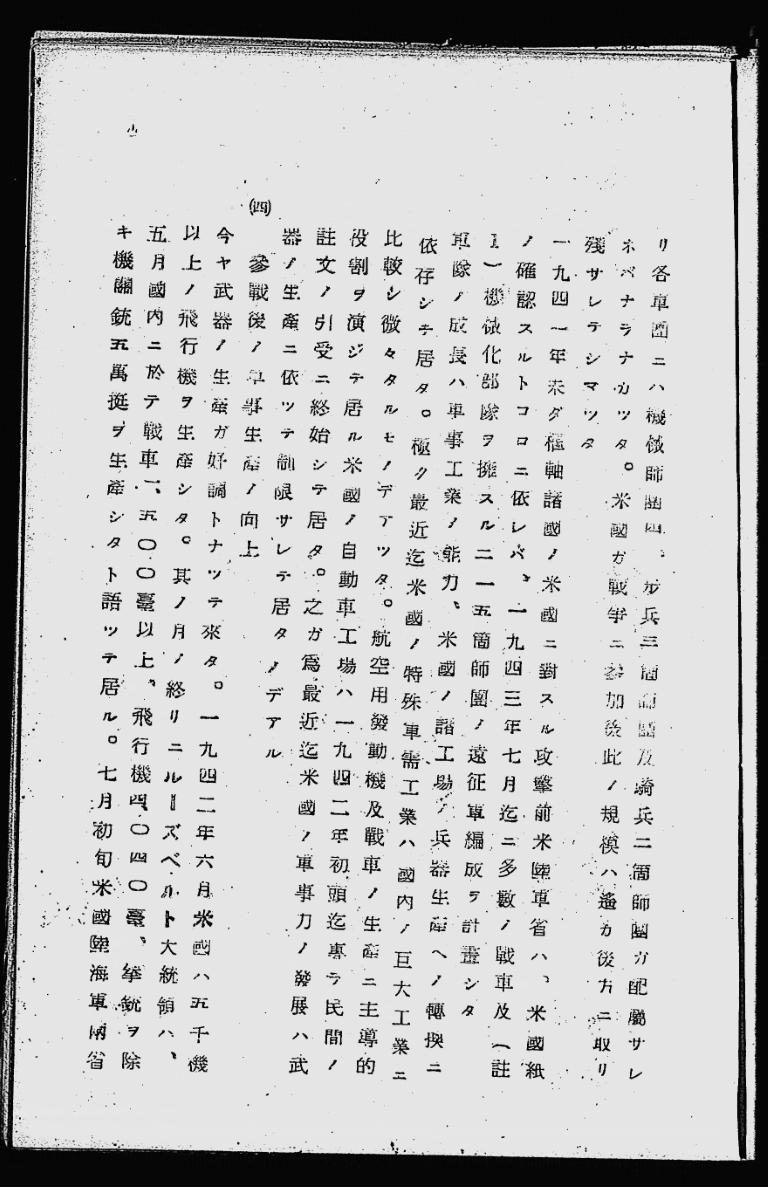 リ各軍團ニハ機械師團四、步兵三箇師團及騎兵二箇師團ガ配屬サレ
ネバナラナカツタ。米國ガ戰爭ニ參加後此ノ規模ハ遙カ後方ニ取リ
殘サレテシマツタ
一九四一年未ダ樞軸諸國ノ米國ニ對スル攻擊前米陸軍省ハ、米國紙
ノ確認スルトコロニ依レバ、一九四三年七月迄ニ多數ノ戰車及(註
1)機械化部隊ヲ擁スル二一五箇師團ノ遠征軍編成ヲ計畫シタ
軍隊ノ成長ハ軍事工業ノ能力、米國ノ諸工場ノ兵器生產ヘノ轉換ニ
依存シテ居タ。極ク最近迄米國ノ特殊軍需工業ハ國內ノ巨大工業ニ
比較シ微々タルモノデアツタ。航空用發動機及戰車ノ生產ニ主導的
役割ヲ演ジテ居ル米國ノ自動車工場ハ一九四二年初頭迄專ラ民間ノ
註文ノ引受ニ終始シテ居タ。之ガ爲最近迄米國ノ軍事力ノ發展ハ武
器ノ生產ニ依ツテ制限サレテ居タノデアル
(四)參戰後ノ軍事生產ノ向上
今ヤ武器ノ生產ガ好調トナツテ來タ。一九四二年六月米國ハ五千機
以上ノ飛行機ヲ生產シタ。其ノ月ノ終リニルーズベルト大統領ハ、
五月國內ニ於テ戰車一、五〇〇臺以上、飛行機四、〇四〇臺、拳銃ヲ除
キ機關銃五萬挺ヲ生產シタト語ツテ居ル。七月初旬米國陸海軍兩省